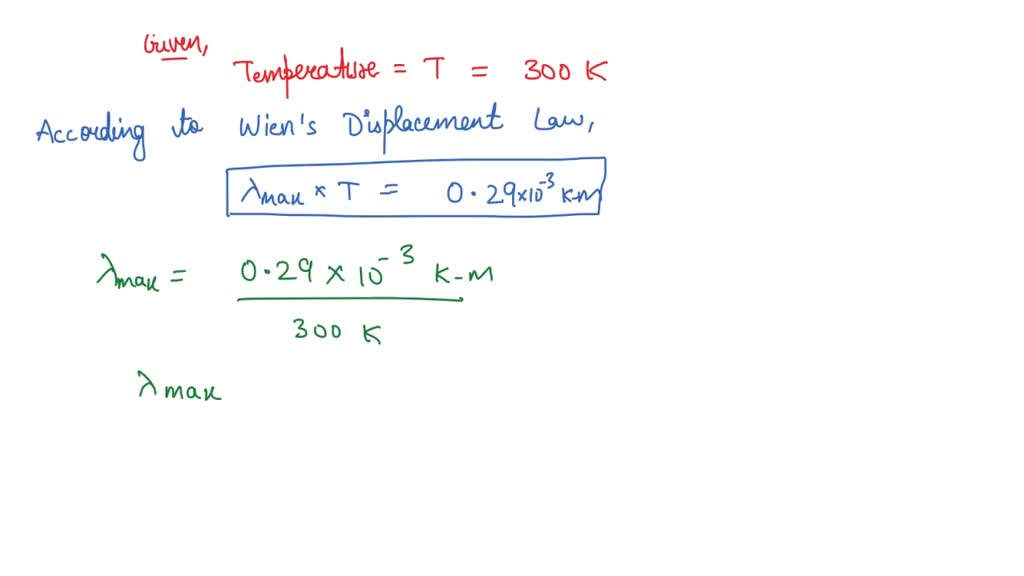 Given,
Temperature = T = 300 K
According to Wien's Displacement Law,
λmax × T = 0.29×10⁻³ K-m
λmax = 0.29 × 10⁻³ K-m
300 K
λmax